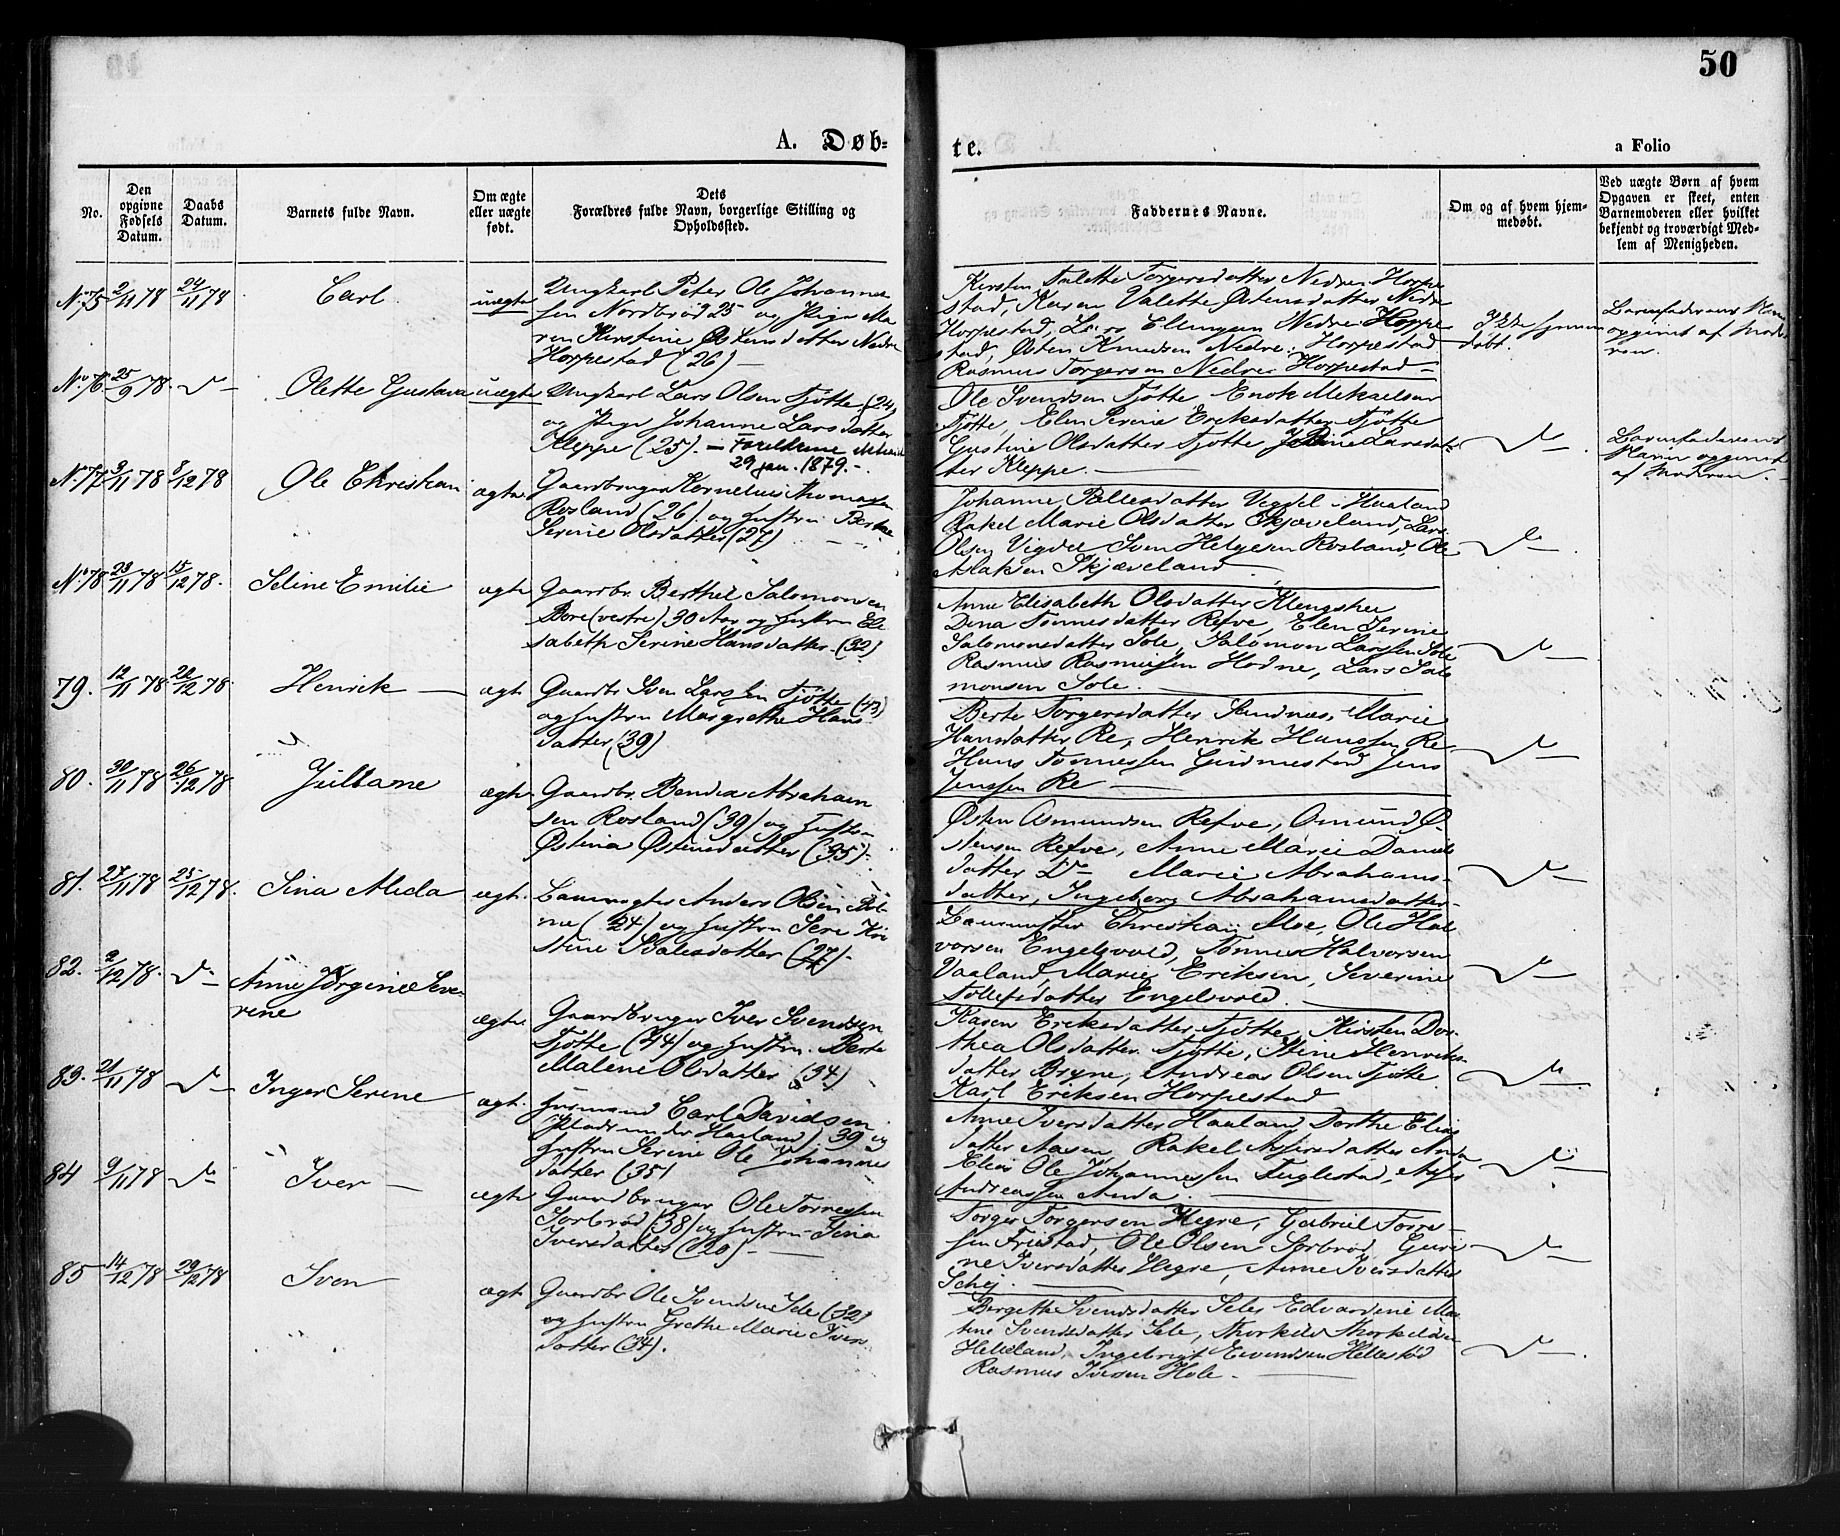 50
A. Døb-
te.
a Folio
No.
Den
opgivne
Fødsels
Datum.
Daabs
Datum.
Barnets fulde Navn.
Om ægte
eller uægte
født.
Dets
Forældres fulde Navn, borgerlige Stilling og
Opholdssted.
Faddernes Navne.
Om og af hvem hjem-
medøbt.
Ved uægte Børn af hvem
Opgaven er skeet, enten
Barnemoderen eller hvilket
bekjendt og troværdigt Med-
lem af Menigheden.
No 75 2/11 78 24/11 78 Carl uægte
Ungkarl Peter Ole Johanne
sen Nordbrød 25 og Pige Ma
ren Kirstine Østensdatter Nedre
Horpestad (26) —
Kirsten Talette Torgersdatter Nedre Horpe
stad, Karen Valette Østensdatter Nedre
Horpestad, Lars Ellingsen Nedre Horpe
stad, Østen Knudsen Nedre Horpestad
Rasmus Torgersen Nedre Horpestad —
Ikke hjemme
døbt.
Barnefaderens Navn
opgivet af Mode
ren.
No 76 25/9 78. Do — Olette Gustava uægte
Ungkarl Lars Olsen Tjøtte (24)
og Pige Johanne Larsdatter
Kleppe (25). — Forældrene
29 jan. 1879. —
Ole Svendsen Tjøtte Enok Mikaelsen
Tjøtte, Elen Serine Eriksdatter Tjøtte
Gustine Olsdatter Tjøtte Larsdat-
ter Kleppe. —
Do —
Barnefaderens
Navn opgivet
af Moderen. —
No 77 9/11 78 8/12 78 Ole Christian ægte
Gaardbruger Kornelius Thomassen
Rosland (26) og Hustru Berthe
Serine Olsdatter (27)
Johanne Pallesdatter Vigdel Haaland
Rakel Marie Olsdatter Skjæveland, Lars
Olsen Vigdel Sven Helgesen Rosland, Ole
Aslaksen Skjæveland
Do —
No 78 23/11 78 15/12 78. Seline Emilie ægte
Gaardbr. Berthel Salomonsen
Bore (vestre) 30 Aar og Hustru Eli
sabeth Serine Hansdatter (32)
Anne Elisabeth Olsdatter
Dina Tønnesdatter Refve, Elen Serine
Salomonsdatter Sole, Salomon Larssen Sole
Rasmus Rasmussen Hodne, Lars Salo
monsen Sole.
Do —
79. 12/11 78 22/12 78. Henrik — ægte
Gaardbr Sven Larssen Tjøtte (43)
og Hustru Margrethe Hans
datter (39)
Berte Torgersdatter Sandnes, Marie
Hansdatter Re, Henrik Hanssen Re
Hans Tønnessen Grudmestad Jens
Jenssen Re —
Do —
80. 30/11 78 26/12 78 Juliane ægte
Gaardbr. Bendix Abraham
sen Rosland (39) og Hustru
Østina Østensdatter (35) —
Østen Asmundsen Refve, Omund Ø
stensen Refve, Anne Marie Daniels
datter Do — Marie Abrahams-
datter, Ingeborg Abrahamsdatter —
Do —
81. 27/11 78 25/12 78. Sina Alida ægte
Banevogter Anders Olsen
(24) og Hustru Sere Kri
stine datter (27) —
Banemester Christian Moe, Ole Hal
vorsen Engelsvold, Tønnes Halvorsen
Vaaland, Marie Eriksen, Severine
Tollefsdatter Engelsvold.
Do —
82. 2/12 78. Do — Anne Jørgine Seve-
rine ægte
Gaardbruger Iver Svendsen
Tjøtte (44) og Hustru Berte
Malene Olsdatter (34)
Karen Eriksdatter Tjøtte, Kirsten Dor
thea Olsdatter Tjøtte, Stine Henriks
datter Bryne, Andreas Olsen Tjøtte
Karl Eriksen Horpestad
Do —
83. 21/11 78 Do — Inger Serene ægte
Husmand Carl Davidsen
(Plads under Haaland) 39 og
Hustru Serine Ole Johannes
datter (35)
Anne Iversdatter Haaland Dorthe Elias
datter Aasen, Rakel Asgersdatter Anda
Elias Ole Johannessen Fuglestad,
Andreassen Anda. —
Do —
84 9/11 78 Do Iver — ægte
Gaardbruger Ole Torressen
Sørbrød (38) og Hustru Sina
Iversdatter (20) —
Torger Torgersen Hegre, Gabriel Torre-
sen Friestad, Ole Olsen Sørbrød, Guri
ne Iversdatter Hegre, Anne Iversdatter
Schej. —
Do —
85 14/12 78 29/12 78 Sven ægte
Gaardbr Ole Svendsen Sele (32)
og Hustru Grethe Marie Iver
datter (34).
Bergette Svendsdatter Sele, Edvardine Ma
tine Svendsdatter Sele, Thorkild Thorkildsen
Helleland, Ingebrigt Eivendsen Hellestød
Rasmus Iversen Hole. —
Do —